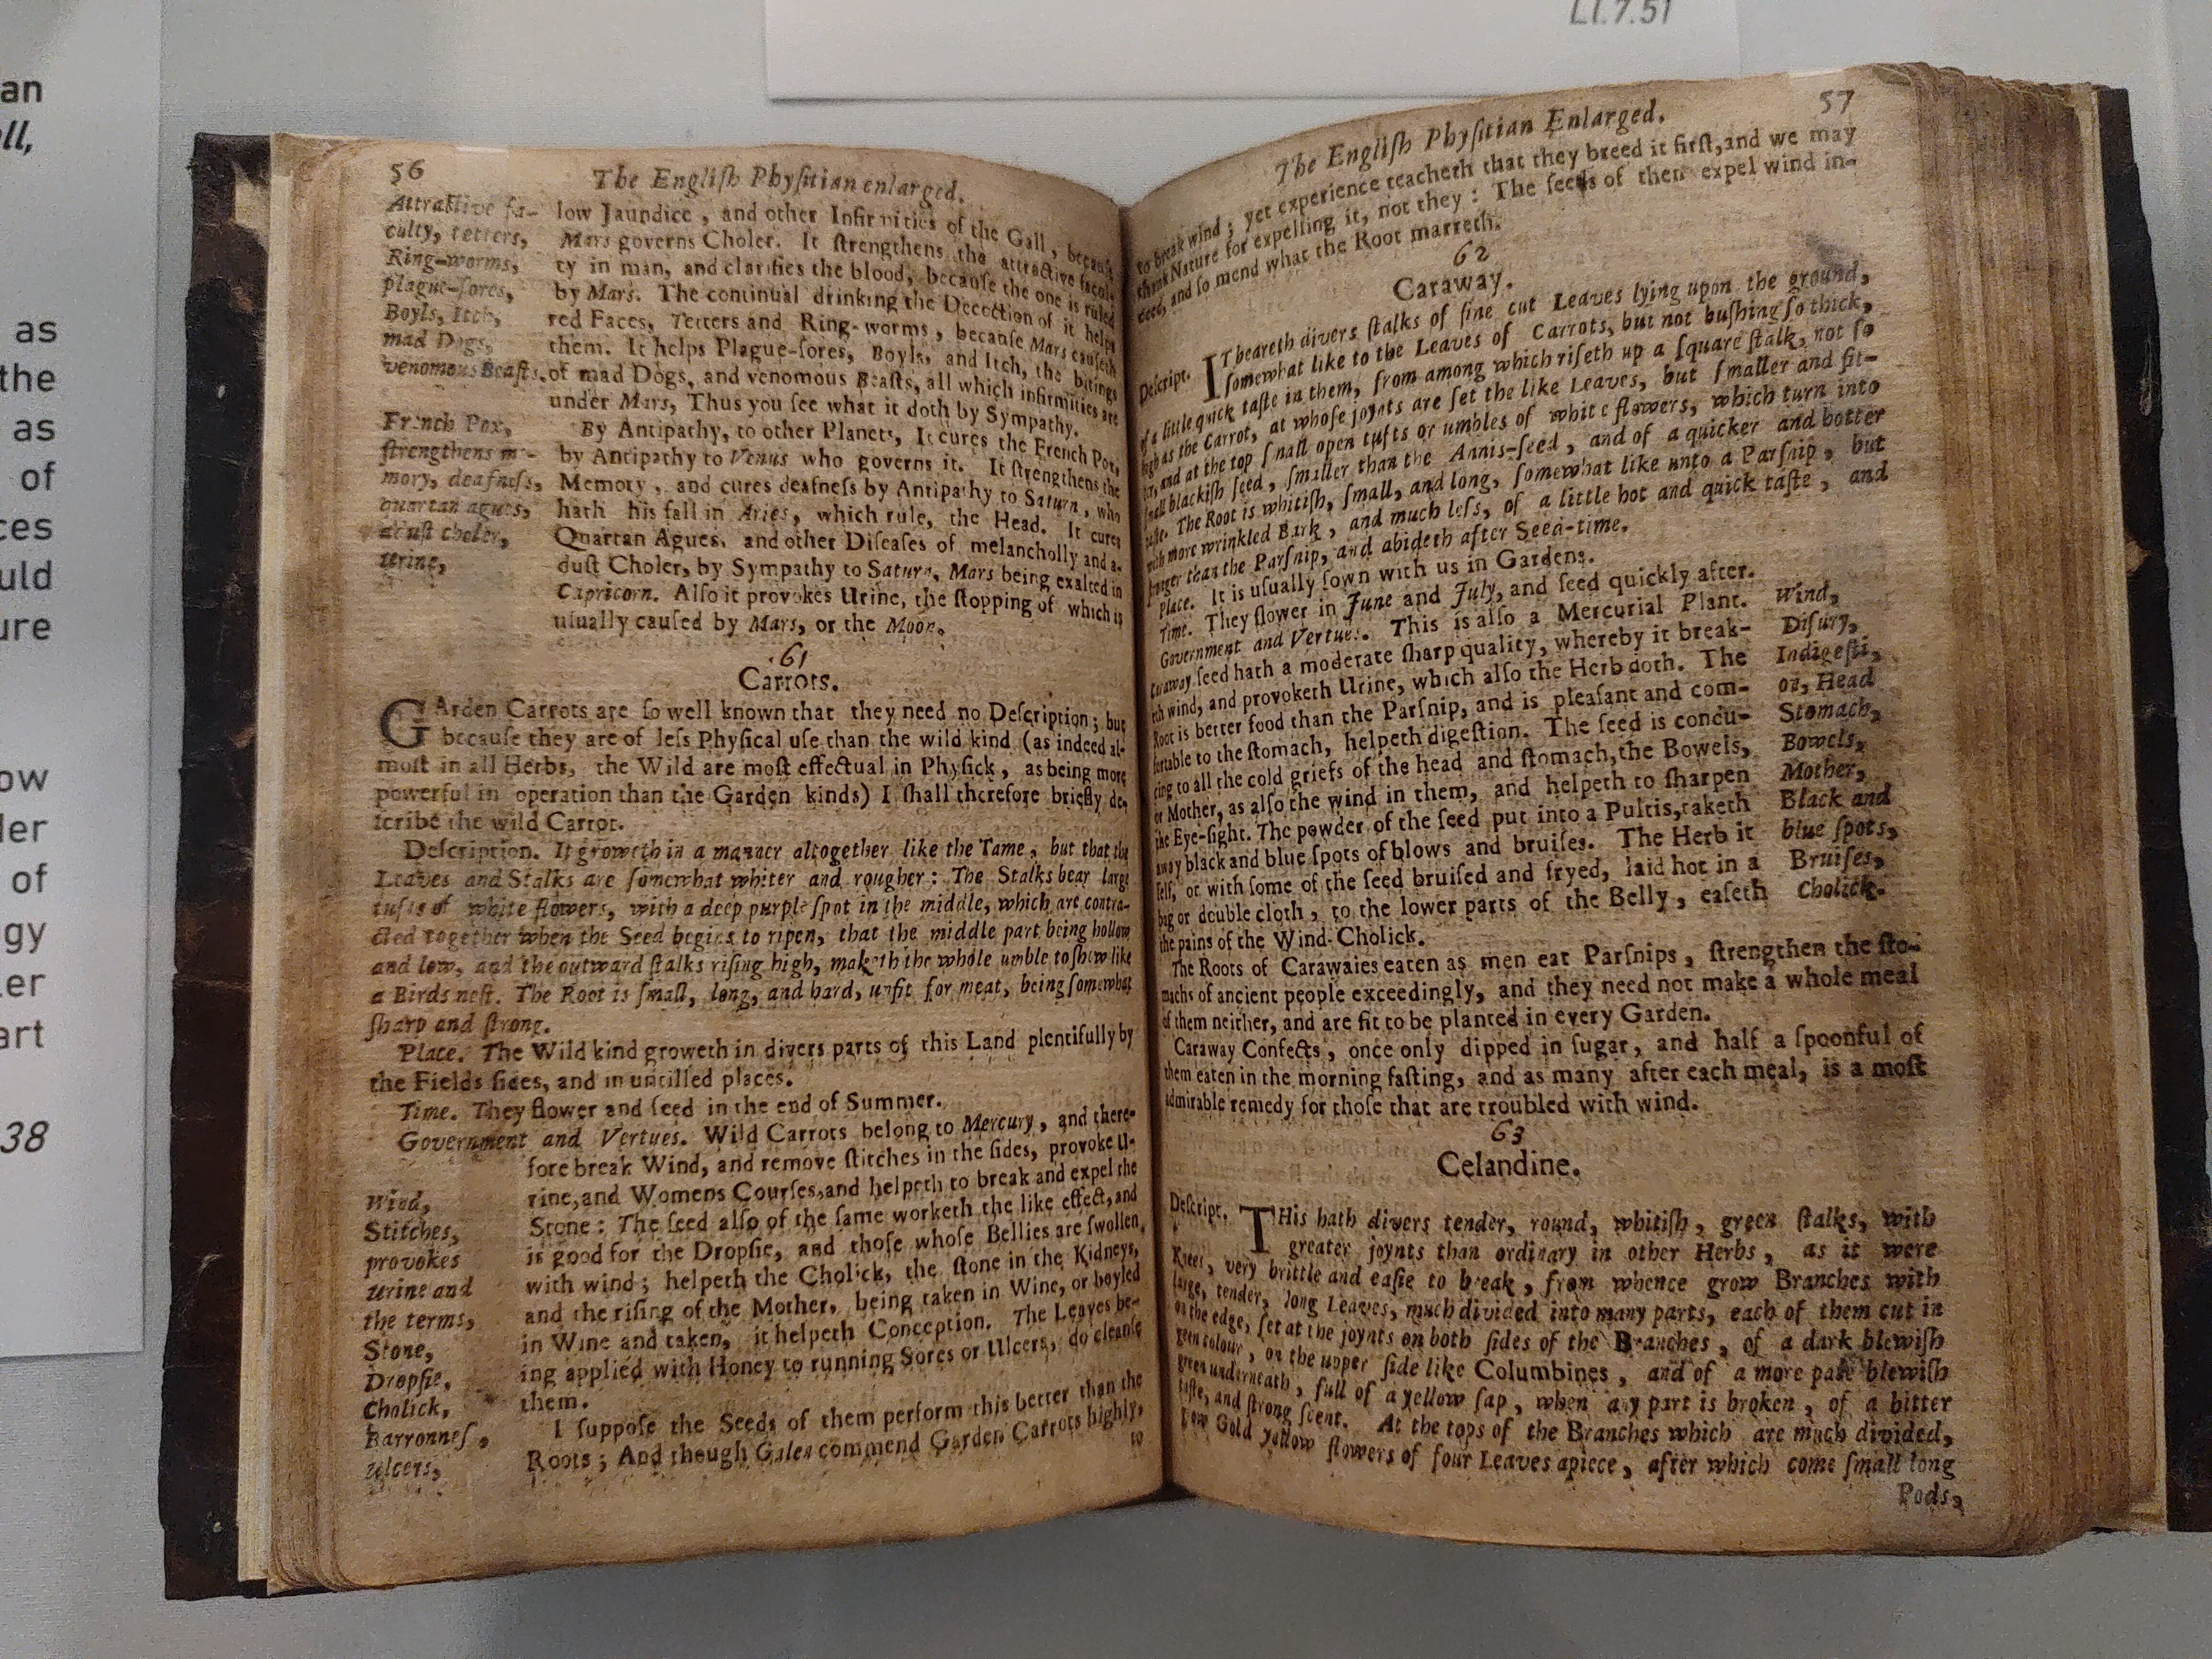 an
ll,
as
the
as
of
ces
uld
ure
ow
ler
of
gy
er
art
38
LI.7.51
56
The Engliſh Phyſitian enlarged.
Attractive fa-
culty, tetters,
Ring-worms,
plague-ſores,
Boyls, Itch,
mad Dogs,
venomous Beaſts.
French Pox,
ſtrengthens me-
mory, deafneſs,
quartan agues,
aduſt choler,
urine,
low Jaundice, and other Infirmities of the Gall, becauſe
Mars governs Choler. It ſtrengthens the attractive facul-
ty in man, and clarifies the blood, becauſe the one is ruled
by Mars. The continual drinking the Decoction of it helps
red Faces, Tetters and Ring-worms, becauſe Mars cauſeth
them. It helps Plague-ſores, Boyls, and Itch, the bitings
of mad Dogs, and venomous Beaſts, all which infirmities are
under Mars, Thus you ſee what it doth by Sympathy.
By Antipathy, to other Planets, It cures the French Pox,
by Antipathy to Venus who governs it. It ſtrengthens the
Memory, and cures deafneſs by Antipathy to Saturn, who
hath his fall in Aries, which rule, the Head. It cures
Quartan Agues, and other Diſeaſes of melancholly and a-
duſt Choler, by Sympathy to Saturn, Mars being exalted in
Capricorn. Alſo it provokes Urine, the ſtopping of which is
uſually cauſed by Mars, or the Moon.
61
Carrots.
GArden Carrots are ſo well known that they need no Deſcription; but
becauſe they are of leſs Phyſical uſe than the wild kind (as indeed al-
moſt in all Herbs, the Wild are moſt effectual in Phyſick, as being more
powerful in operation than the Garden kinds) I ſhall therefore briefly de-
ſcribe the wild Carrot.
Deſcription. It groweth in a manner altogether like the Tame, but that the
Leaves and Stalks are ſomewhat whiter and rougher: The Stalks bear large
tufts of white flowers, with a deep purple ſpot in the middle, which are contra-
cted together when the Seed begins to ripen, that the middle part being hollow
and low, and the outward ſtalks riſing high, maketh the whole umble to ſhew like
a Birds neſt. The Root is ſmall, long, and hard, unfit for meat, being ſomewhat
ſharp and ſtrong.
Place. The Wild kind groweth in divers parts of this Land plentifully by
the Fields ſides, and in untilled places.
Time. They flower and ſeed in the end of Summer.
Government and Vertues. Wild Carrots belong to Mercury, and there-
fore break Wind, and remove ſtitches in the ſides, provoke U-
rine, and Womens Courſes, and helpeth to break and expel the
Stone: The ſeed alſo of the ſame worketh the like effect, and
is good for the Dropſie, and thoſe whoſe Bellies are ſwollen
with wind; helpeth the Cholick, the ſtone in the Kidneys,
and the riſing of the Mother, being taken in Wine, or boyled
in Wine and taken, it helpeth Conception. The Leaves be-
ing applied with Honey to running Sores or Ulcers, do cleanſe
them.
I ſuppoſe the Seeds of them perform this better than the
Roots; And though Galen commend Garden Carrots highly,
to
Wind,
Stitches,
provokes
urine and
the terms,
Stone,
Dropſie,
Cholick,
Barronneſ,
ulcers,
57
The Engliſh Phyſitian Enlarged.
to break wind; yet experience teacheth that they breed it firſt, and we may
thank Nature for expelling it, not they: The ſeeds of then expel wind in-
deed, and ſo mend what the Root marreth.
62
Caraway.
Deſcript. IT beareth divers ſtalks of fine cut Leaves lying upon the ground,
ſomewhat like to the Leaves of Carrots, but not buſhing ſo thick,
of a little quick taſte in them, from among which riſeth up a ſquare ſtalk, not ſo
high as the Carrot, at whoſe joynts are ſet the like Leaves, but ſmaller and fit-
ter, and at the top ſmall open tufts or umbles of white flowers, which turn into
ſmall blackiſh ſeed, ſmaller than the Annis-ſeed, and of a quicker and hotter
taſte. The Root is whitiſh, ſmall, and long, ſomewhat like unto a Parſnip, but
with more wrinkled Bark, and much leſs, of a little hot and quick taſte, and
ſtronger than the Parſnip, and abideth after Seed-time.
Place. It is uſually ſown with us in Gardens.
Time. They flower in June and July, and ſeed quickly after.
Government and Vertues. This is alſo a Mercurial Plant.
Caraway ſeed hath a moderate ſharp quality, whereby it break-
eth wind, and provoketh Urine, which alſo the Herb doth. The
Root is better food than the Parſnip, and is pleaſant and com-
fortable to the ſtomach, helpeth digeſtion. The ſeed is condu-
cing to all the cold griefs of the head and ſtomach, the Bowels,
or Mother, as alſo the wind in them, and helpeth to ſharpen
the Eye-ſight. The powder of the ſeed put into a Pultis, taketh
away black and blue ſpots of blows and bruiſes. The Herb it
ſelf, or with ſome of the ſeed bruiſed and fryed, laid hot in a
bag or double cloth, to the lower parts of the Belly, eaſeth
the pains of the Wind-Cholick.
Wind,
Diſury,
Indigeſti,
on, Head
Stomach,
Bowels,
Mother,
Black and
blue ſpots,
Bruiſes,
Cholick.
The Roots of Carawaies eaten as men eat Parſnips, ſtrengthen the ſto-
machs of ancient people exceedingly, and they need not make a whole meal
of them neither, and are fit to be planted in every Garden.
Caraway Confects, once only dipped in ſugar, and half a ſpoonful of
them eaten in the morning faſting, and as many after each meal, is a moſt
admirable remedy for thoſe that are troubled with wind.
63
Celandine.
Deſcript. THis hath divers tender, round, whitiſh, green ſtalks, with
greater joynts than ordinary in other Herbs, as it were
Knees, very brittle and eaſie to break, from whence grow Branches with
large, tender, long Leaves, much divided into many parts, each of them cut in
on the edge, ſet at the joynts on both ſides of the Branches, of a dark blewiſh
green colour, on the upper ſide like Columbines, and of a more pale blewiſh
green underneath, full of a yellow ſap, when any part is broken, of a bitter
taſte, and ſtrong ſcent. At the tops of the Branches which are much divided,
grow Gold yellow flowers of four Leaves apiece, after which come ſmall long
Pods,